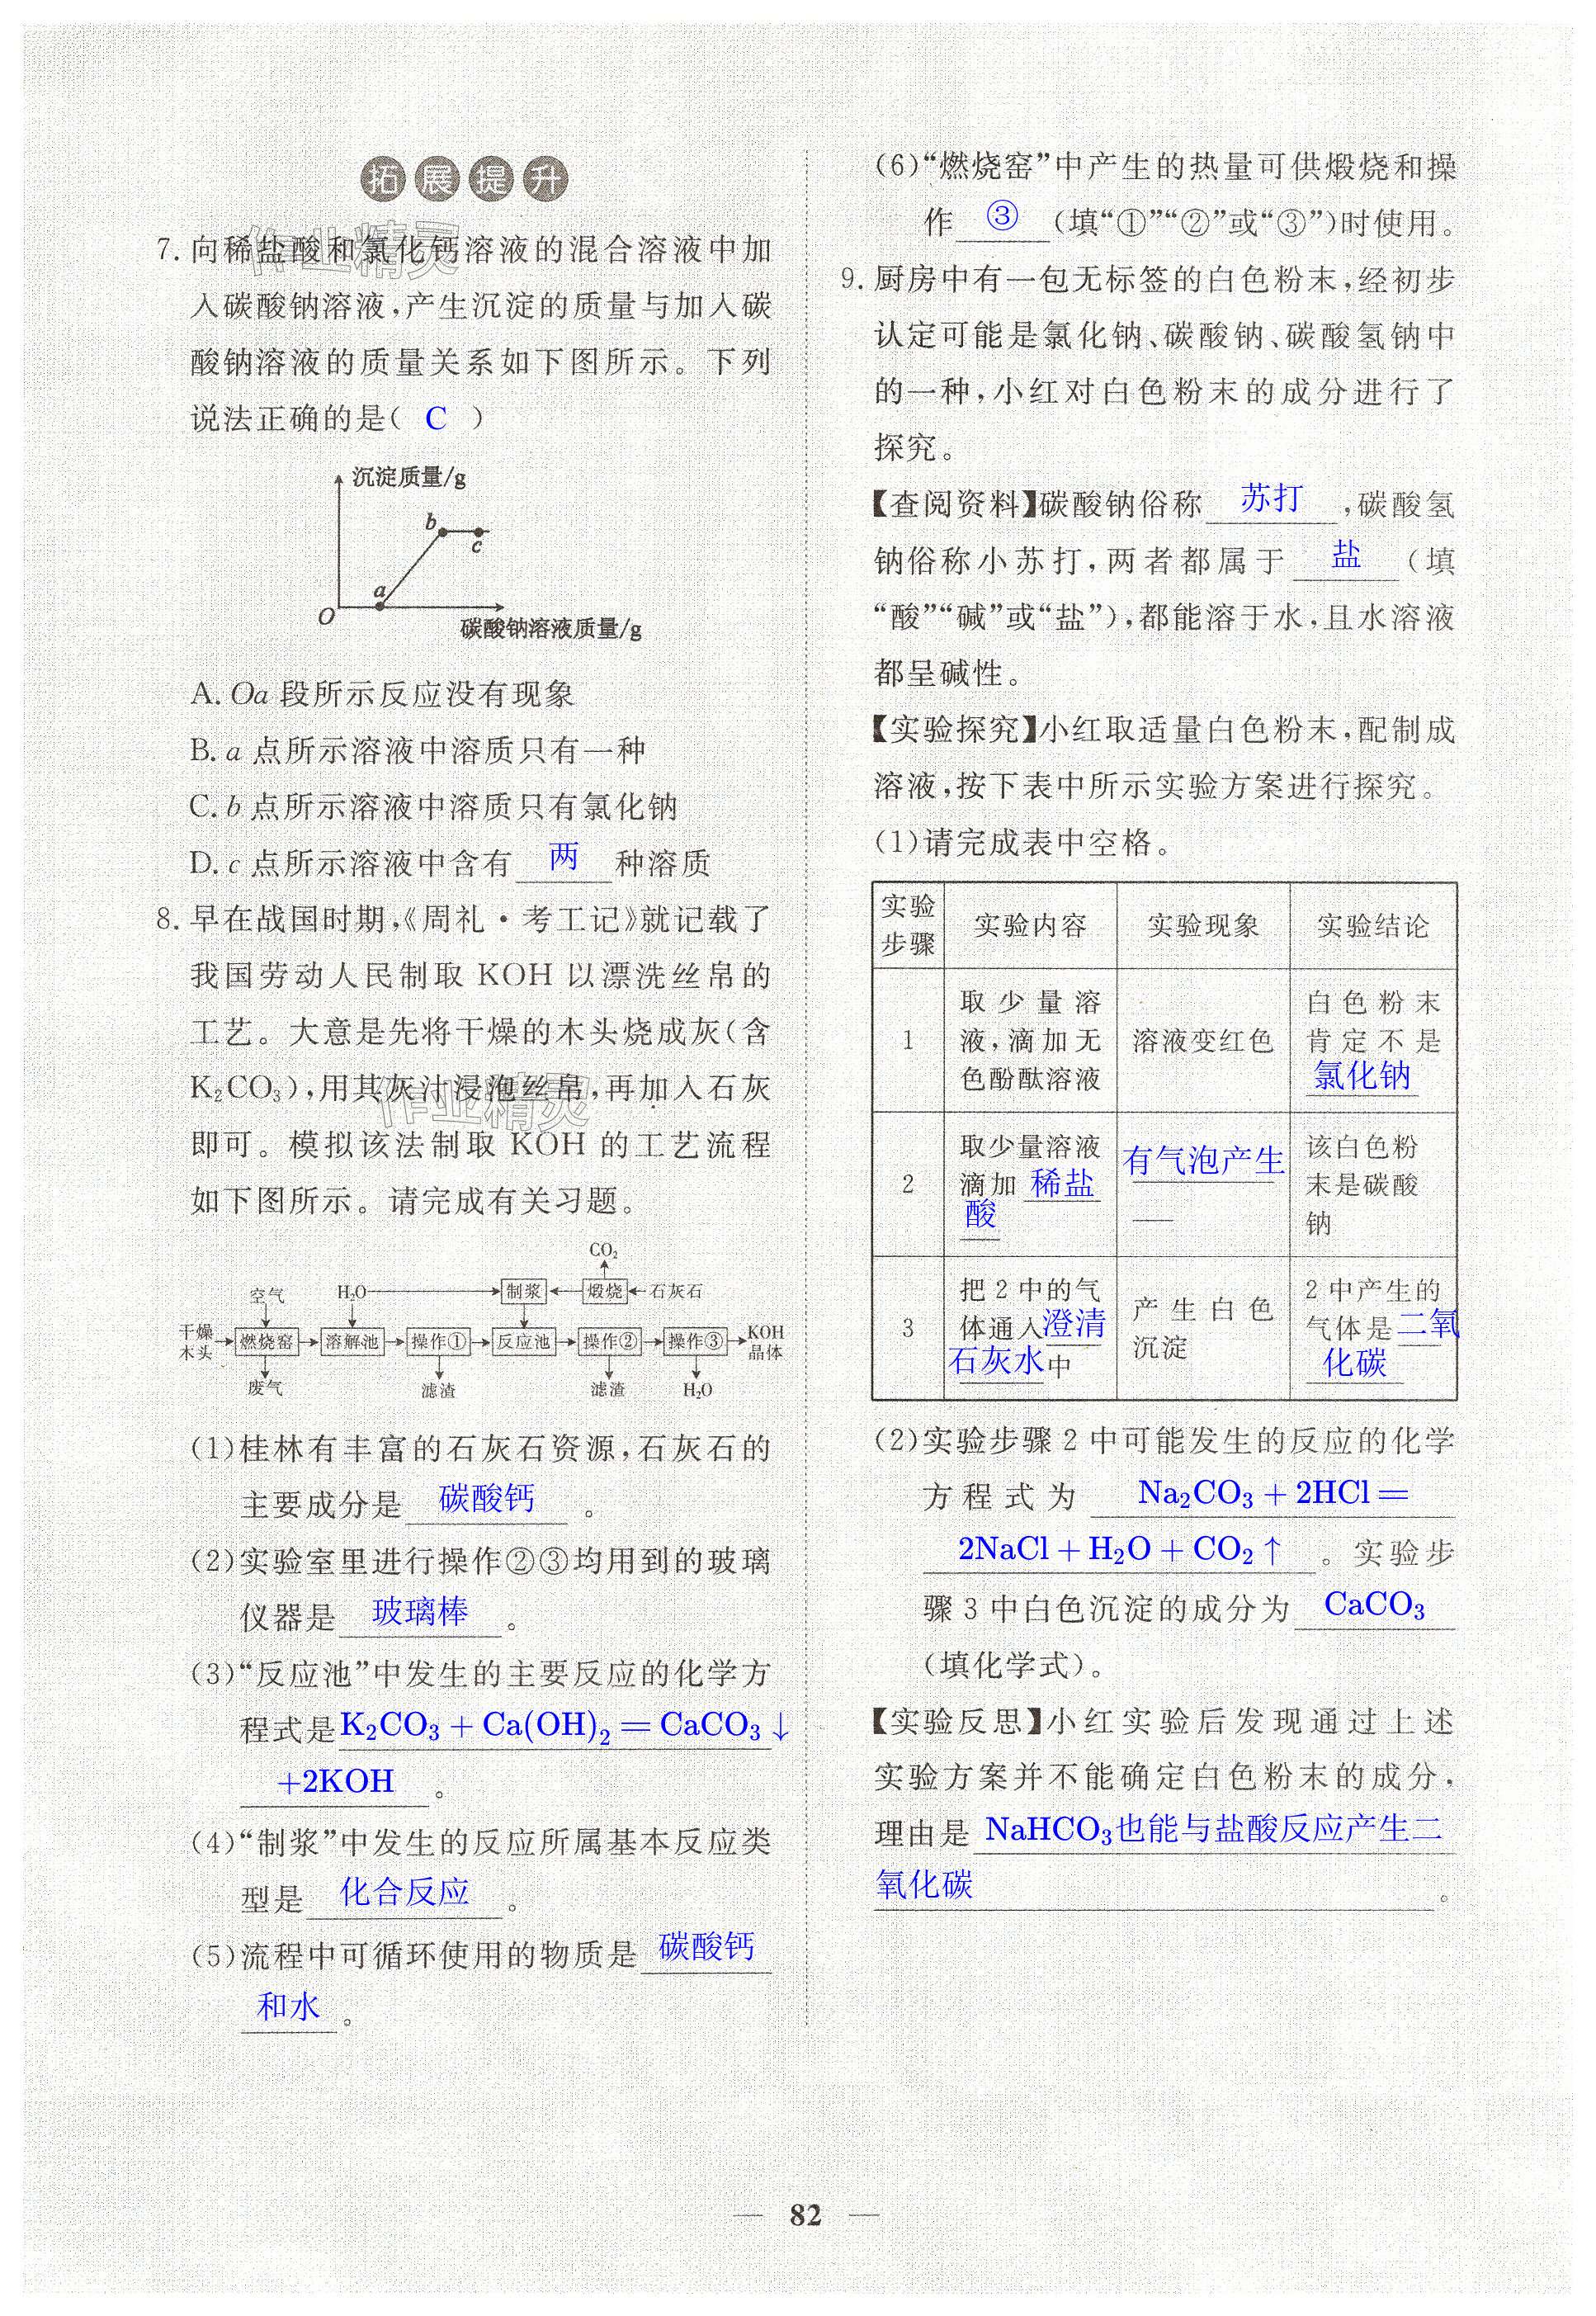 拓展提升
作业精灵
7. 向稀盐酸和氯化钙溶液的混合溶液中加
入碳酸钠溶液,产生沉淀的质量与加入碳
酸钠溶液的质量关系如下图所示。下列
说法正确的是( C )
沉淀质量/g
b
c
a
O
碳酸钠溶液质量/g
A. Oa 段所示反应没有现象
B. a 点所示溶液中溶质只有一种
C. b 点所示溶液中溶质只有氯化钠
D. c 点所示溶液中含有 两 种溶质
8. 早在战国时期,《周礼·考工记》就记载了
我国劳动人民制取 KOH 以漂洗丝帛的
工艺。大意是先将干燥的木头烧成灰(含
K₂CO₃),用其灰汁浸泡丝帛,再加入石灰
作业精灵
即可。模拟该法制取 KOH 的工艺流程
如下图所示。请完成有关习题。
CO₂
空气 H₂O 制浆 煅烧 石灰石
干燥木头 燃烧窑 溶解池 操作① 反应池 操作② 操作③ KOH晶体
废气 滤渣 滤渣 H₂O
(1)桂林有丰富的石灰石资源,石灰石的
主要成分是 碳酸钙 。
(2)实验室里进行操作②③均用到的玻璃
仪器是 玻璃棒 。
(3)“反应池”中发生的主要反应的化学方
程式是 K₂CO₃ + Ca(OH)₂ = CaCO₃↓
+2KOH 。
(4)“制浆”中发生的反应所属基本反应类
型是 化合反应 。
(5)流程中可循环使用的物质是 碳酸钙
和水 。
(6)“燃烧窑”中产生的热量可供煅烧和操
作 ③ (填“①”“②”或“③”)时使用。
9. 厨房中有一包无标签的白色粉末,经初步
认定可能是氯化钠、碳酸钠、碳酸氢钠中
的一种,小红对白色粉末的成分进行了
探究。
【查阅资料】碳酸钠俗称 苏打 ,碳酸氢
钠俗称小苏打,两者都属于 盐 (填
“酸”“碱”或“盐”),都能溶于水,且水溶液
都呈碱性。
【实验探究】小红取适量白色粉末,配制成
溶液,按下表中所示实验方案进行探究。
(1)请完成表中空格。
实验步骤 实验内容 实验现象 实验结论
1 取少量溶液,滴加无色酚酞溶液 溶液变红色 白色粉末肯定不是 氯化钠
2 取少量溶液滴加 稀盐酸 有气泡产生 该白色粉末是碳酸钠
3 把 2 中的气体通入 澄清石灰水 中 产生白色沉淀 2 中产生的气体是 二氧化碳
(2)实验步骤 2 中可能发生的反应的化学
方程式为 Na₂CO₃ + 2HCl =
2NaCl + H₂O + CO₂↑ 。实验步
骤 3 中白色沉淀的成分为 CaCO₃
(填化学式)。
【实验反思】小红实验后发现通过上述
实验方案并不能确定白色粉末的成分,
理由是 NaHCO₃也能与盐酸反应产生二
氧化碳 。
— 82 —